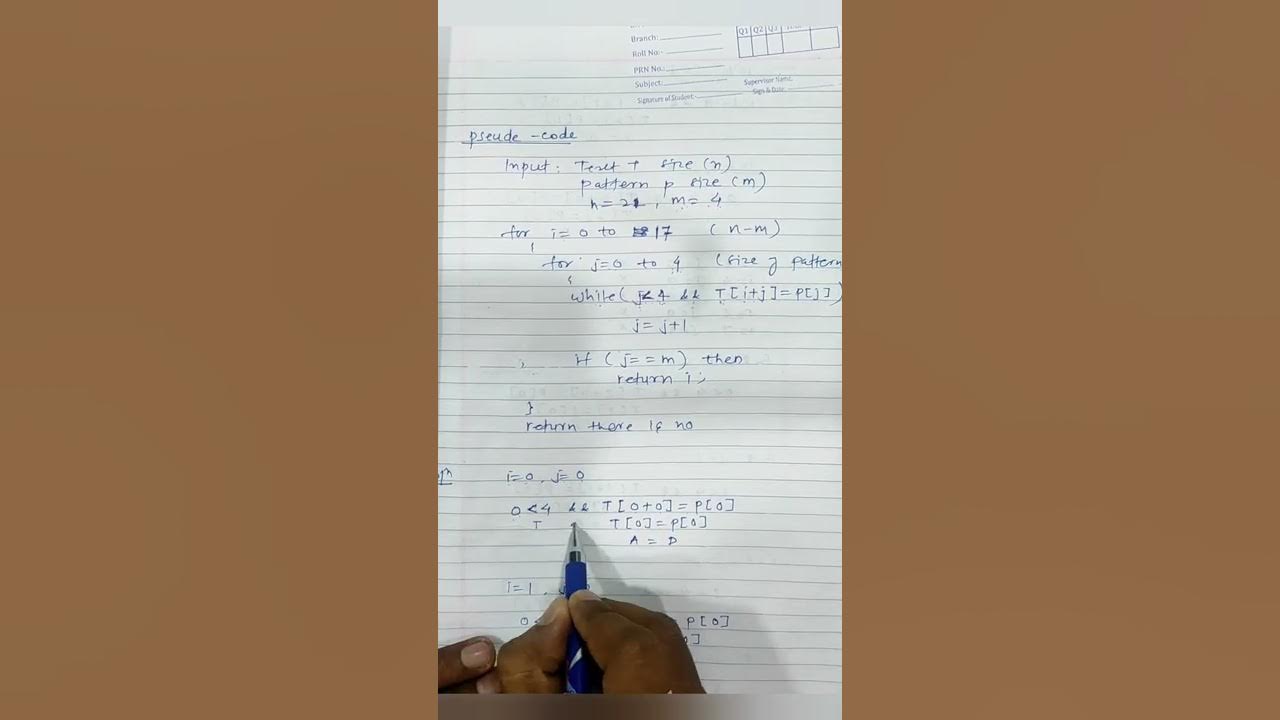 Branch:
Q1 Q2 Q3
Roll No:-
PRN No.:
Subject:
Supervisor Name,
Signature of Student:
Sign & Date:
pseude -code
Input: Text T size (n)
pattern p size (m)
n=21, m= 4
for i= 0 to 17 (n-m)
{
for j=0 to 4 (size of pattern
{
while( j<4 && T[i+j]=P[j])
j= j+1
; if (j==m) then
return i;
}
return there if no
i=0, j= 0
0<4 && T[0+0]=P[0]
T T[0]=P[0]
A = D
i=1,
0 < = P[0]
0]